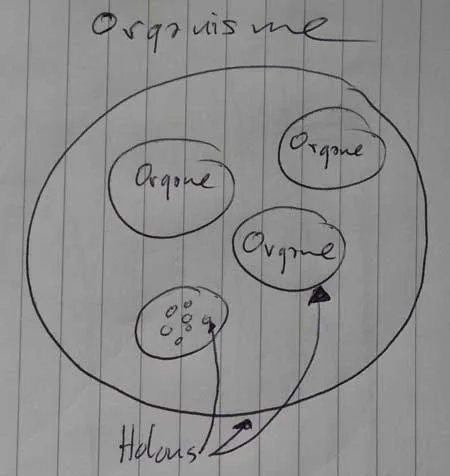 Organisme
Organe
Organe
Organe
Holons